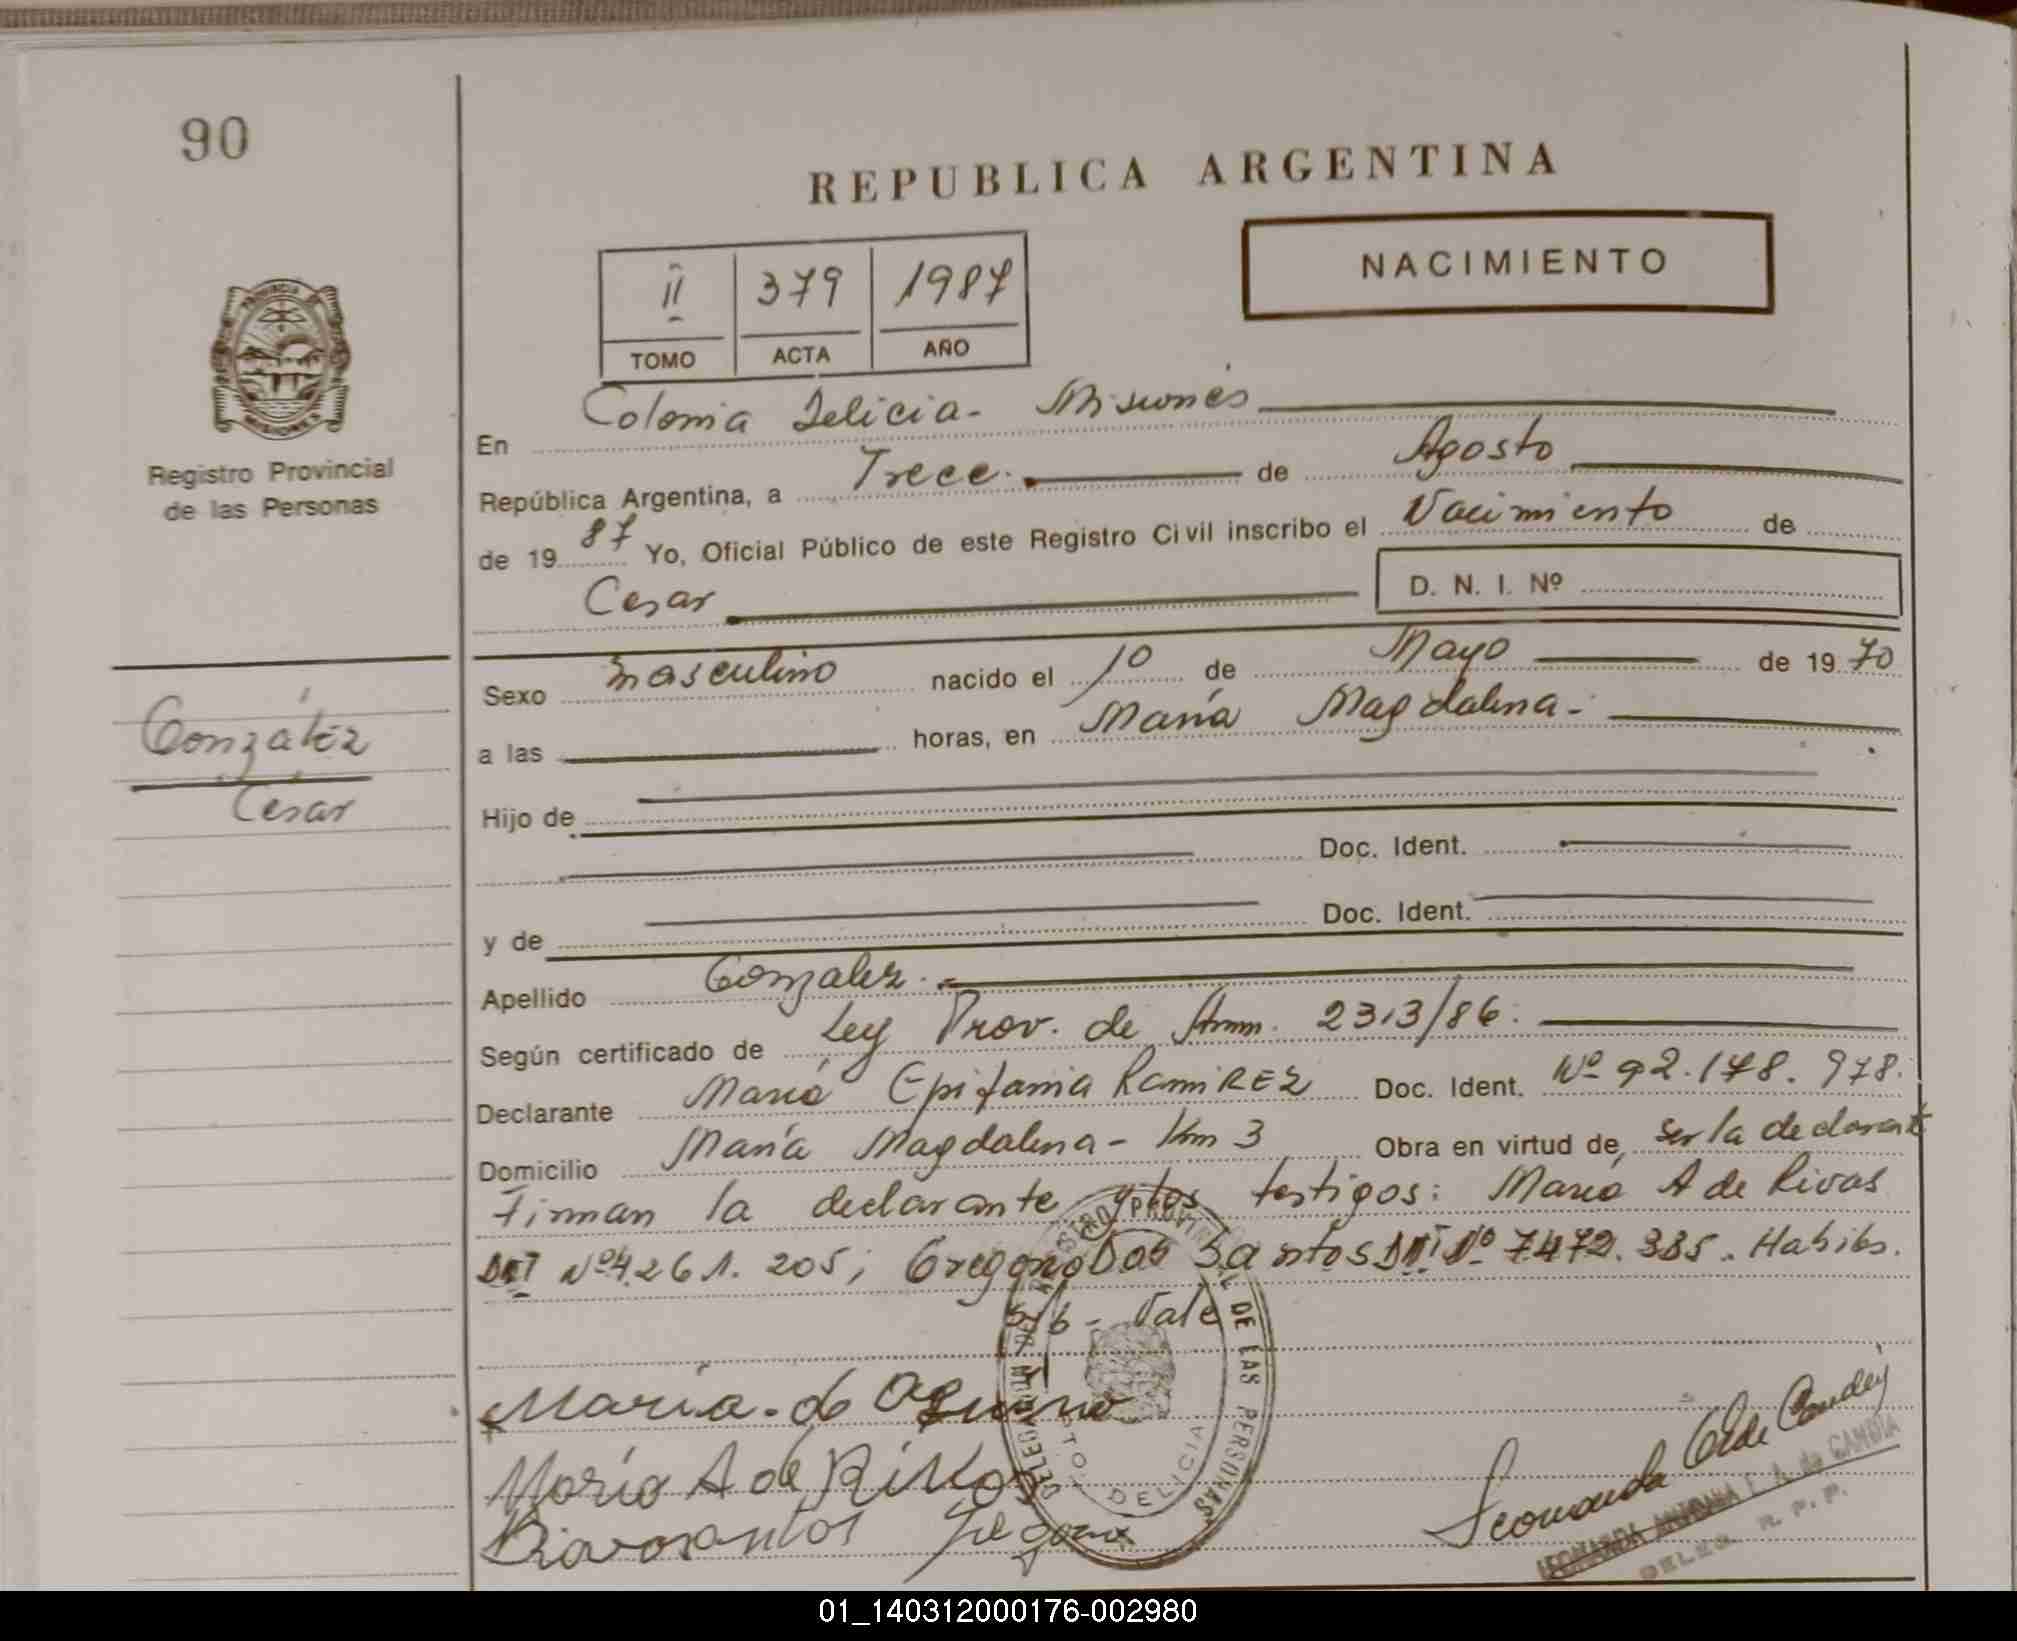 90
REPUBLICA ARGENTINA
NACIMIENTO
II 379 1987
TOMO ACTA AÑO
PROVINCIA DE
MISIONES
Registro Provincial
de las Personas
En Colonia Delicia - Misiones
República Argentina, a Trece. de Agosto
de 19 87 Yo, Oficial Público de este Registro Civil inscribo el Nacimiento de
Cesar D. N. I. Nº
Sexo masculino nacido el 10 de Mayo de 19 70
a las horas, en María Magdalena -
González
Cesar
Hijo de
Doc. Ident.
y de Doc. Ident.
Apellido Gonzalez.
Según certificado de Ley Prov. de Amn. 2313/86.
Declarante María Epifania RamiREZ Doc. Ident. Nº 92.178.978.
Domicilio María Magdalena - Km 3 Obra en virtud de, ser la declarant
Firman la declarante y los testigos: María A de Rivas
DNI Nº 4.261.205; Gregorio Dos Santos DNI Nº 7.472.385. Habiles.
s/b - Vale
María de
María A de Rivas
Leonarda
LEONARDA ANTONIA I. A. de GANDIA
DELEG. R. P. P.
REGISTRO PROVINCIAL DE LAS PERSONAS
DELICIA
01_140312000176-002980